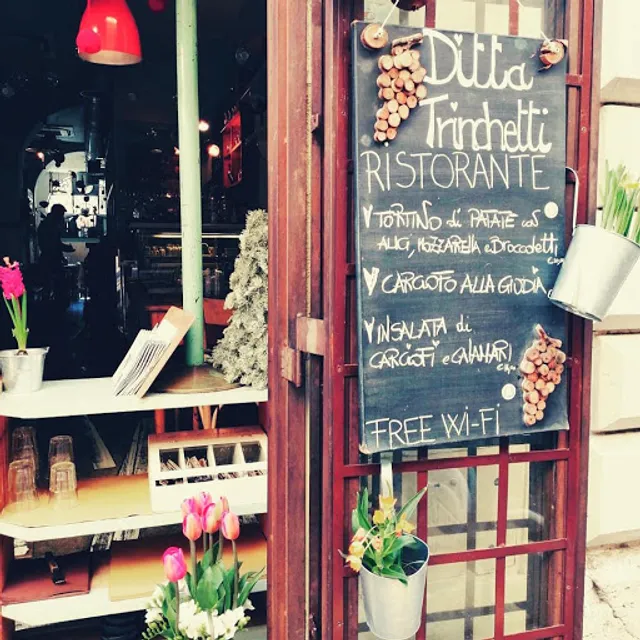 Ditta
Trinchetti
RISTORANTE
TORTINO di PATATE con
ALICI, MOZZARELLA e BROCCOLETTI
CARCIOFO ALLA GIUDIA
INSALATA di
CARCIOFI e CALAMARI
FREE WI-FI